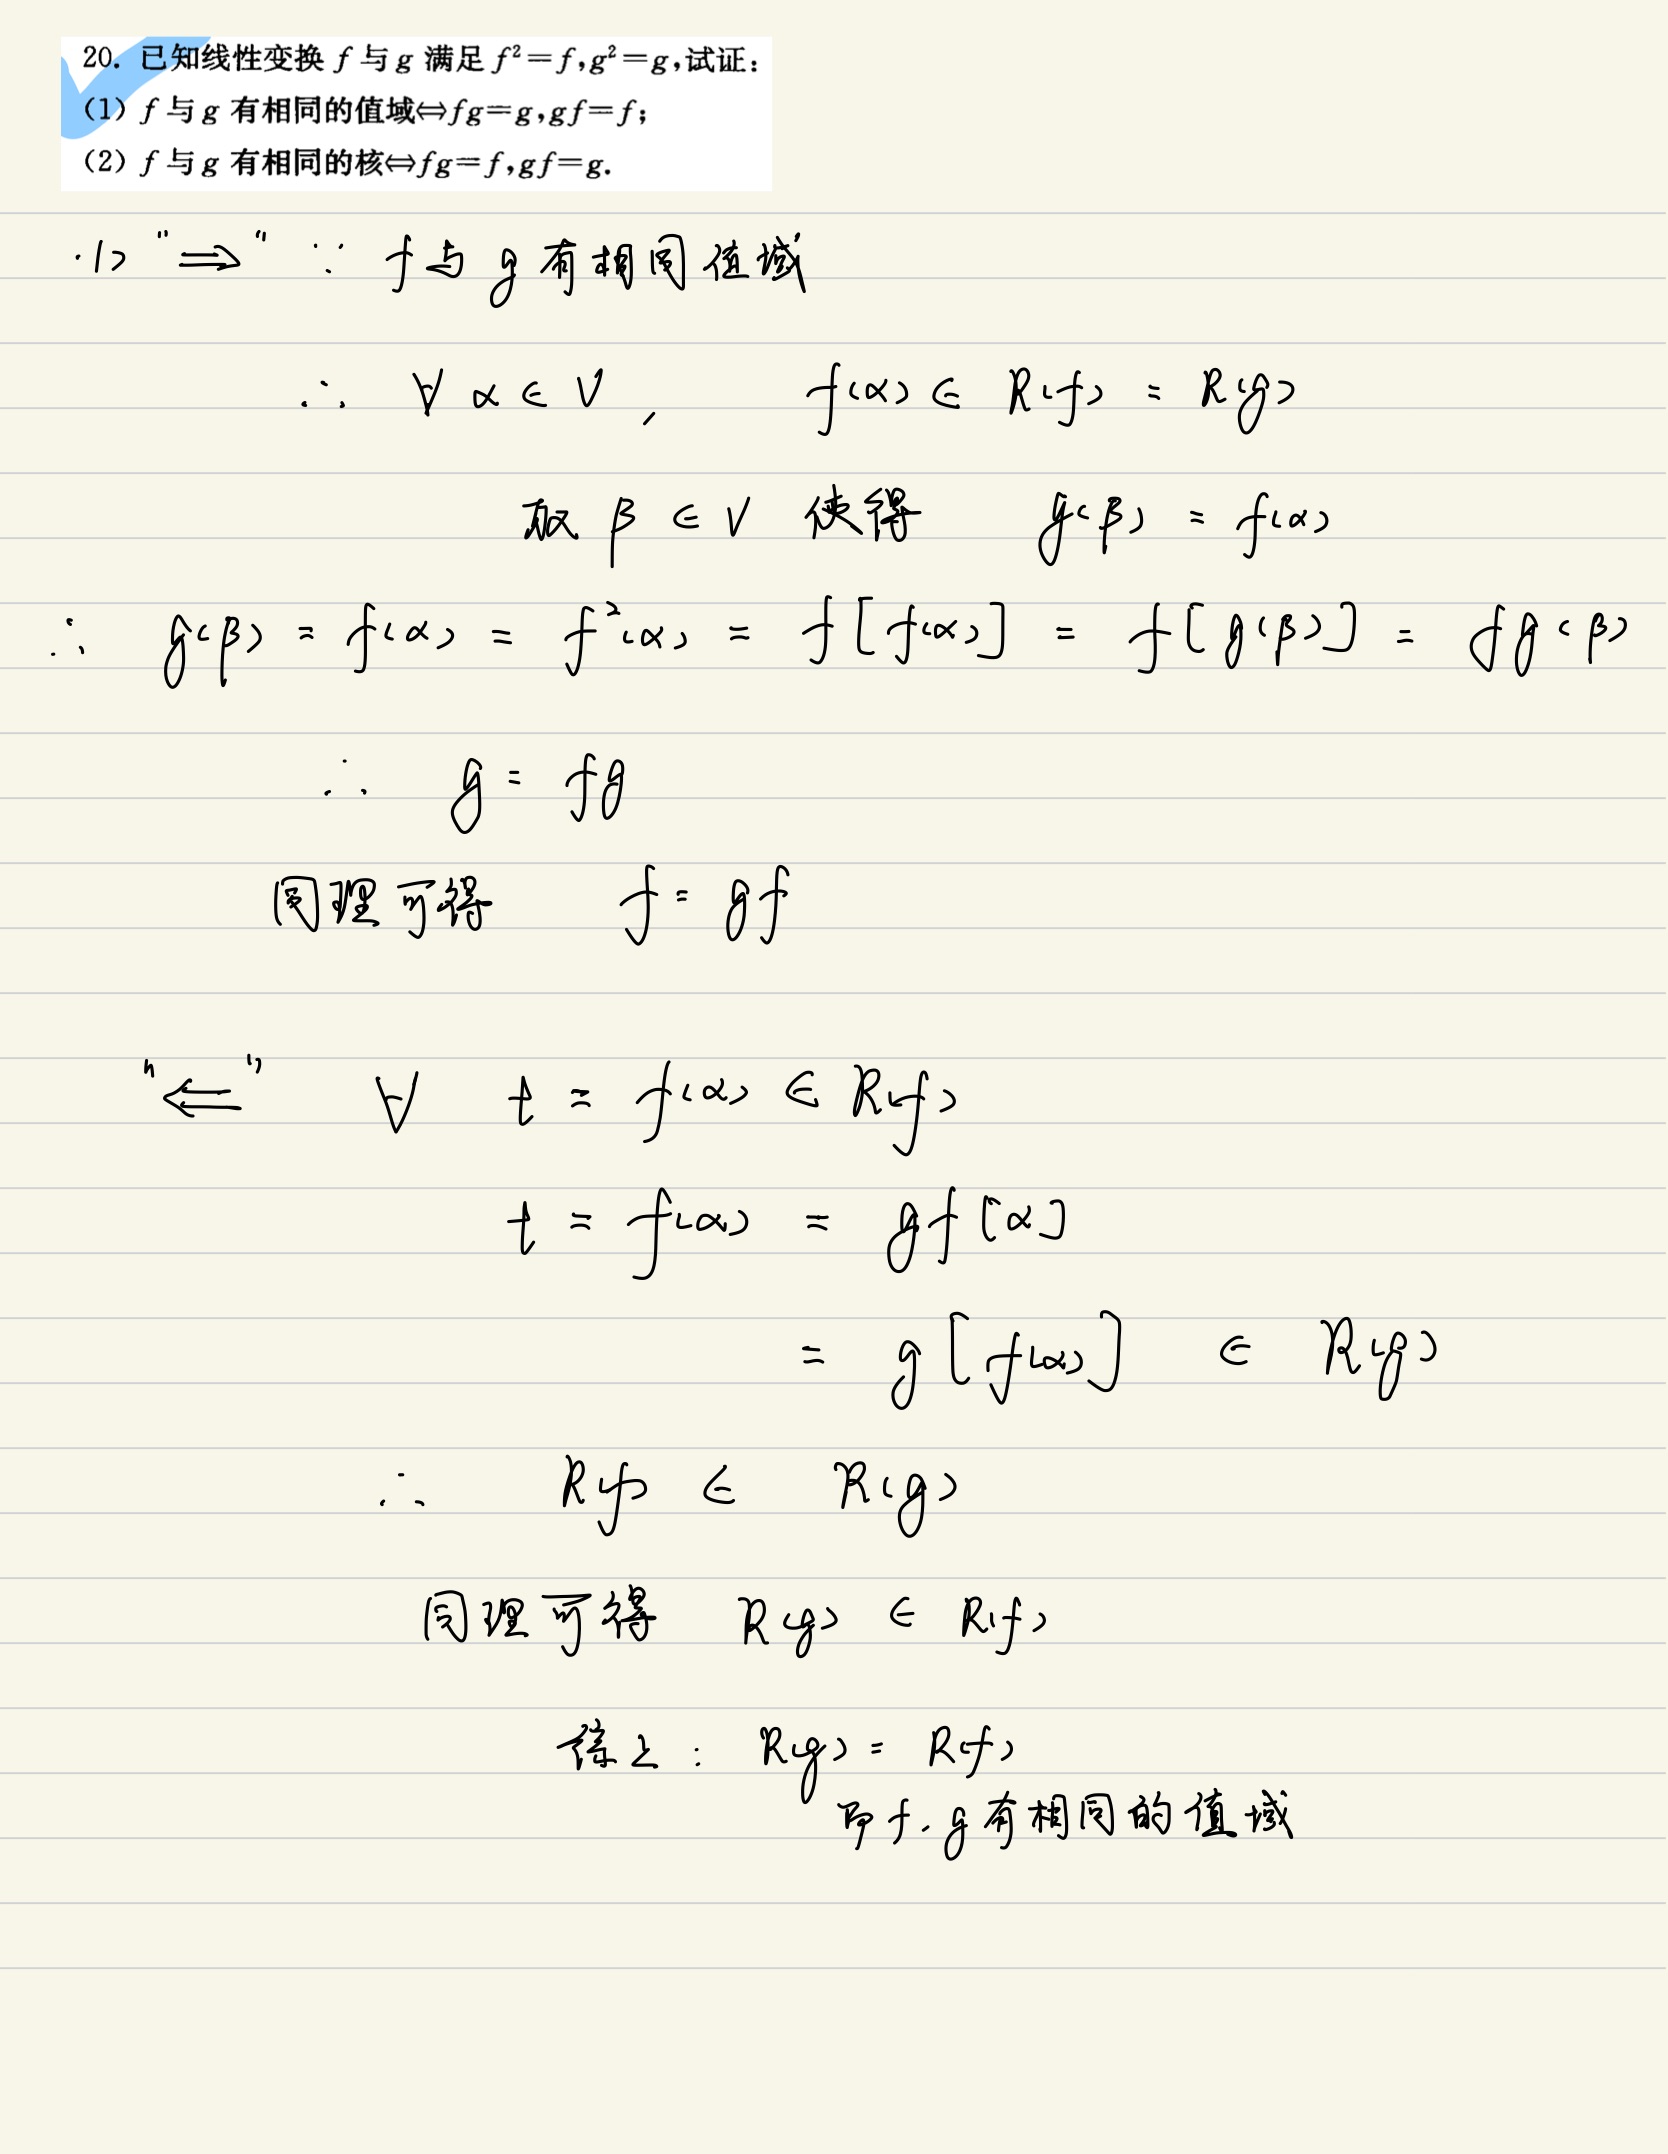 20. 已知线性变换 f 与 g 满足 f²=f,g²=g,试证:
(1) f 与 g 有相同的值域⇔fg=g,gf=f;
(2) f 与 g 有相同的核⇔fg=f,gf=g.
<1> "⟹" ∵ f与 g 有相同值域
∴ ∀ α∈V, f(α) ∈ R(f) = R(g)
取 β∈V 使得 g(β) = f(α)
∴ g(β) = f(α) = f²(α) = f[f(α)] = f[g(β)] = fg(β)
∴ g = fg
同理可得 f = gf
"⟸" ∀ t = f(α) ∈ R(f)
t = f(α) = gf[α]
= g[f(α)] ∈ R(g)
∴ R(f) ∈ R(g)
同理可得 R(g) ∈ R(f)
综上: R(g) = R(f)
即 f. g 有相同的值域